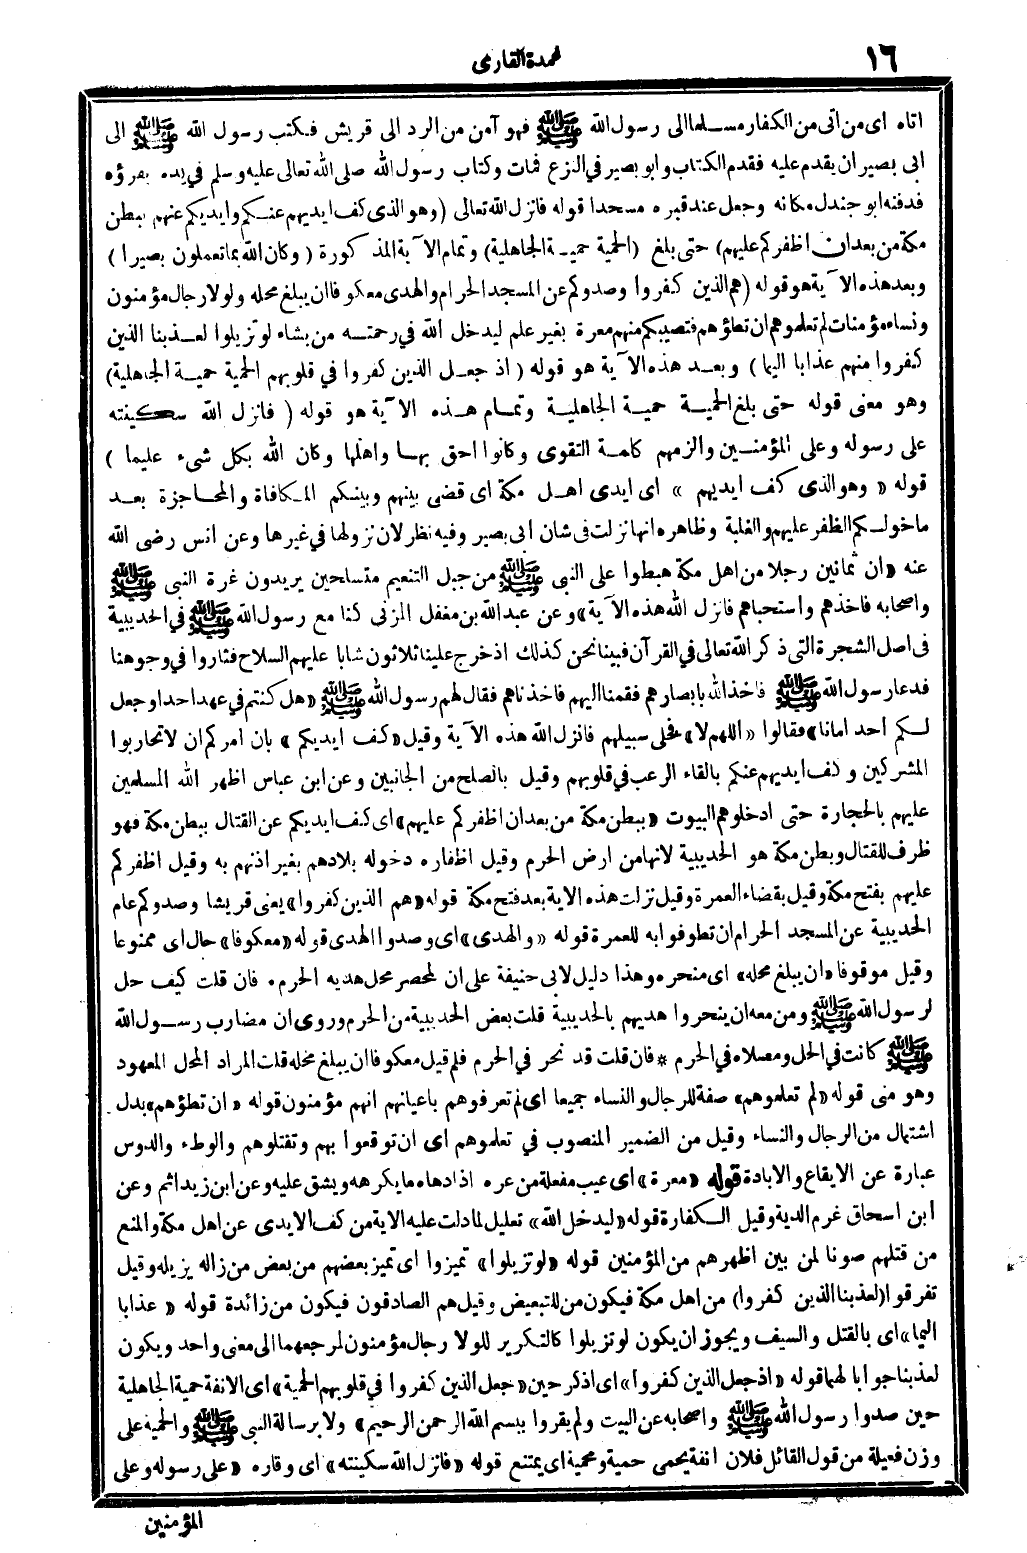 ١٦
عمدة القارى
اتاه اى من اتى من الكفار مسلما الى رسول الله ﷺ فهو آمن من الرد الى قريش فكتب رسول الله ﷺ الى
ابى بصير ان يقدم عليه فقدم الكتاب وابو بصير في النزع فمات وكتاب رسول الله صلى الله تعالى عليه وسلم في يده يقرؤه
فدفنه ابو جندل مكانه وجعل عند قبره مسجدا قوله فانزل الله تعالى (وهو الذى كف ايديهم عنكم وايديكم عنهم ببطن
مكة من بعد ان اظفركم عليهم) حتى بلغ (الحمية حمية الجاهلية) وتمام الآية المذكورة (وكان الله بما تعملون بصيرا)
وبعد هذه الآية هو قوله (هم الذين كفروا وصدوكم عن المسجد الحرام والهدى معكوفا ان يبلغ محله ولولا رجال مؤمنون
ونساء مؤمنات لم تعلموهم ان تطؤهم فتصيبكم منهم معرة بغير علم ليدخل الله في رحمته من يشاء لو تزيلوا لعذبنا الذين
كفروا منهم عذابا اليما) وبعد هذه الآية هو قوله (اذ جعل الذين كفروا في قلوبهم الحمية حمية الجاهلية)
وهو معنى قوله حتى بلغ الحمية حمية الجاهلية وتمام هذه الآية هو قوله (فانزل الله سكينته
على رسوله وعلى المؤمنين والزمهم كلمة التقوى وكانوا احق بها واهلها وكان الله بكل شىء عليما)
قوله «وهو الذى كف ايديهم» اى ايدى اهل مكة اى قضى بينهم وبينكم المكافاة والمحاجزة بعد
ما خولكم الظفر عليهم والغلبة وظاهره انها نزلت فى شان ابى بصير وفيه نظر لان نزولها في غيرها وعن انس رضى الله
عنه «ان ثمانين رجلا من اهل مكة هبطوا على النبى ﷺ من جبل التنعيم متسلحين يريدون غرة النبى ﷺ
واصحابه فاخذهم واستحياهم فانزل الله هذه الآية» وعن عبدالله بن مغفل المزنى كنا مع رسول الله ﷺ في الحديبية
فى اصل الشجرة التى ذكر الله تعالى في القرآن فبينا نحن كذلك اذ خرج علينا ثلاثون شابا عليهم السلاح فثاروا في وجوهنا
فدعا رسول الله ﷺ فاخذ الله بابصارهم فقمنا اليهم فاخذناهم فقال لهم رسول الله ﷺ «هل كنتم في عهد احد او جعل
لكم احد امانا» فقالوا «اللهم لا» فخلى سبيلهم فانزل الله هذه الآية وقيل «كف ايديكم» بان امركم ان لا تحاربوا
المشركين وكف ايديهم عنكم بالقاء الرعب في قلوبهم وقيل بالصلح من الجانبين وعن ابن عباس اظهر الله المسلمين
عليهم بالحجارة حتى ادخلوهم البيوت «ببطن مكة من بعد ان اظفركم عليهم» اى كف ايديكم عن القتال ببطن مكة فهو
ظرف للقتال وبطن مكة هو الحديبية لانها من ارض الحرم وقيل اظفاره دخوله بلادهم بغير اذنهم به وقيل اظفركم
عليهم بفتح مكة وقيل بقضاء العمرة وقيل نزلت هذه الاية بعد فتح مكة قوله «هم الذين كفروا» يعنى قريشا وصدوكم عام
الحديبية عن المسجد الحرام ان تطوفوا به للعمرة قوله «والهدى» اى وصدوا الهدى قوله «معكوفا» حال اى ممنوعا
وقيل موقوفا «ان يبلغ محله» اى منحره وهذا دليل لابى حنيفة على ان المحصر محل هديه الحرم. فان قلت كيف حل
لرسول الله ﷺ ومن معه ان ينحروا هديهم بالحديبية قلت بعض الحديبية من الحرم وروى ان مضارب رسول الله
ﷺ كانت في الحل ومصلاه في الحرم * فان قلت قد نحر في الحرم فلم قيل معكوفا ان يبلغ محله قلت المراد المحل المعهود
وهو منى قوله «لم تعلموهم» صفة للرجال والنساء جميعا اى لم تعرفوهم باعيانهم انهم مؤمنون قوله «ان تطؤهم» بدل
اشتمال من الرجال والنساء وقيل من الضمير المنصوب في تعلموهم اى ان توقعوا بهم وتقتلوهم والوطء والدوس
عبارة عن الايقاع والابادة قوله «معرة» اى عيب مفعلة من عره اذا دهاه ما يكرهه ويشق عليه وعن ابن زيد اثم وعن
ابن اسحاق غرم الدية وقيل الكفارة قوله «ليدخل الله» تعليل لما دلت عليه الاية من كف الايدى عن اهل مكة والمنع
من قتلهم صونا لمن بين اظهرهم من المؤمنين قوله «لو تزيلوا» تميزوا اى تميز بعضهم من بعض من زاله يزيله وقيل
تفرقوا (لعذبنا الذين كفروا) من اهل مكة فيكون من للتبعيض وقيل هم الصادقون فيكون من زائدة قوله «عذابا
اليما» اى بالقتل والسيف ويجوز ان يكون لو تزيلوا كالتكرير للولا رجال مؤمنون لمرجعهما الى معنى واحد ويكون
لعذبنا جوابا لهما قوله «اذ جعل الذين كفروا» اى اذكر حين «جعل الذين كفروا في قلوبهم الحمية» اى الانفة حمية الجاهلية
حين صدوا رسول الله ﷺ واصحابه عن البيت ولم يقروا ببسم الله الرحمن الرحيم» ولا برسالة النبى ﷺ والحمية على
وزن فعيلة من قول القائل فلان انفة يحمى حمية ومحمية اى يمتنع قوله «فانزل الله سكينته» اى وقاره «على رسوله وعلى
المؤمنين